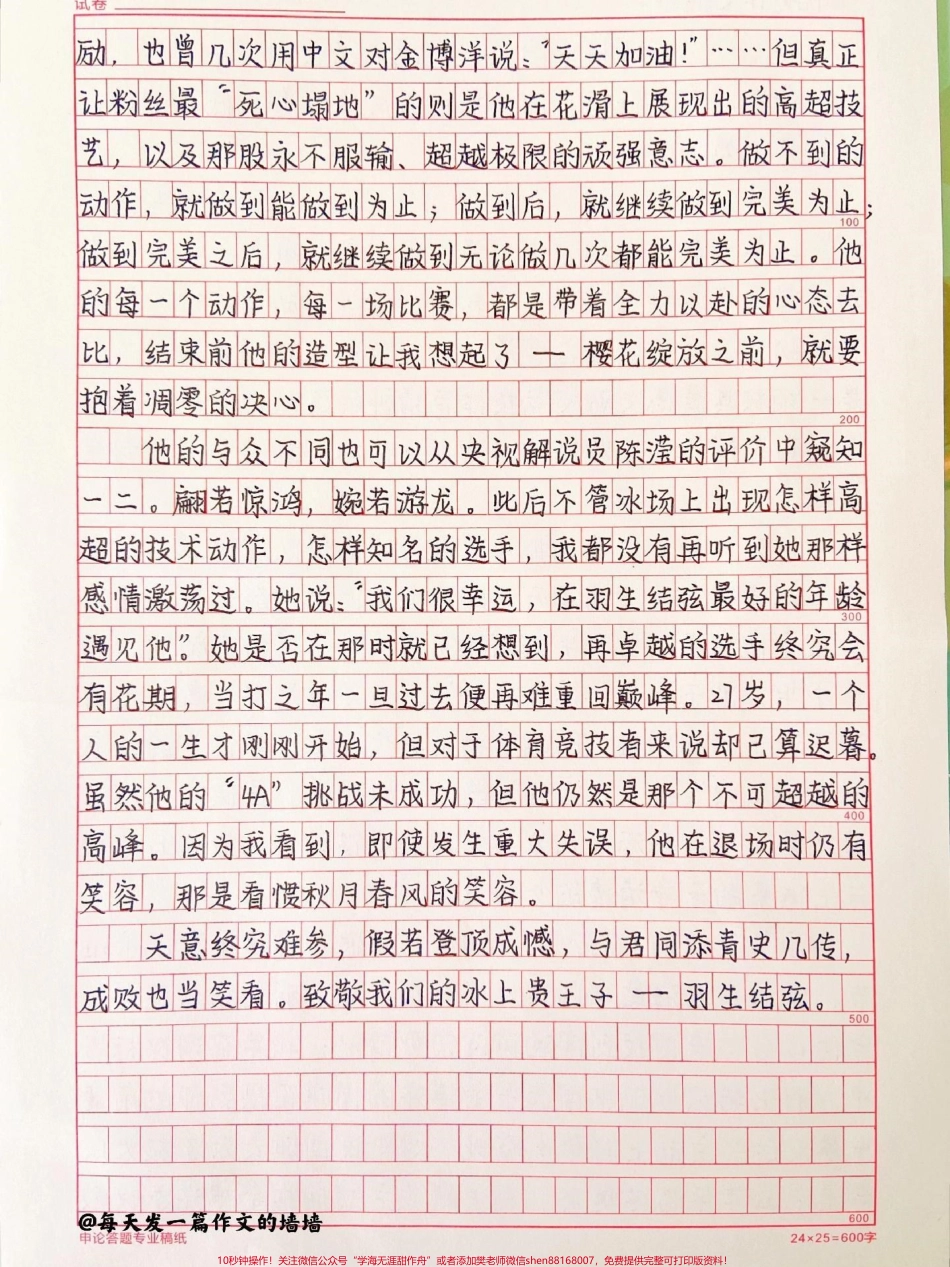 试卷
励，也曾几次用中文对金博洋说：“天天加油！”……但真正
让粉丝最“死心塌地”的则是他在花滑上展现出的高超技
艺，以及那股永不服输、超越极限的顽强意志。做不到的
动作，就做到能做到为止；做到后，就继续做到完美为止；
100
做到完美之后，就继续做到无论做几次都能完美为止。他
的每一个动作，每一场比赛，都是带着全力以赴的心态去
比，结束前他的造型让我想起了—樱花绽放之前，就要
抱着凋零的决心。
200
他的与众不同也可以从央视解说员陈滢的评价中窥知
一二。翩若惊鸿，婉若游龙。此后不管冰场上出现怎样高
超的技术动作，怎样知名的选手，我都没有再听到她那样
感情激荡过。她说：“我们很幸运，在羽生结弦最好的年龄
300
遇见他”。她是否在那时就已经想到，再卓越的选手终究会
有花期，当打之年一旦过去便再难重回巅峰。27岁，一个
人的一生才刚刚开始，但对于体育竞技者来说却已算迟暮。
虽然他的“4A”挑战未成功，但他仍然是那个不可超越的
400
高峰。因为我看到，即使发生重大失误，他在退场时仍有
笑容，那是看惯秋月春风的笑容。
天意终究难参，假若登顶成憾，与君同添青史几传，
成败也当笑看。致敬我们的冰上贵王子—羽生结弦。
500
600
@每天发一篇作文的墙墙
申论答题专业稿纸
24×25=600字
10秒钟操作！关注微信公众号“学海无涯甜作舟”或者添加樊老师微信shen88168007，免费提供完整可打印版资料！